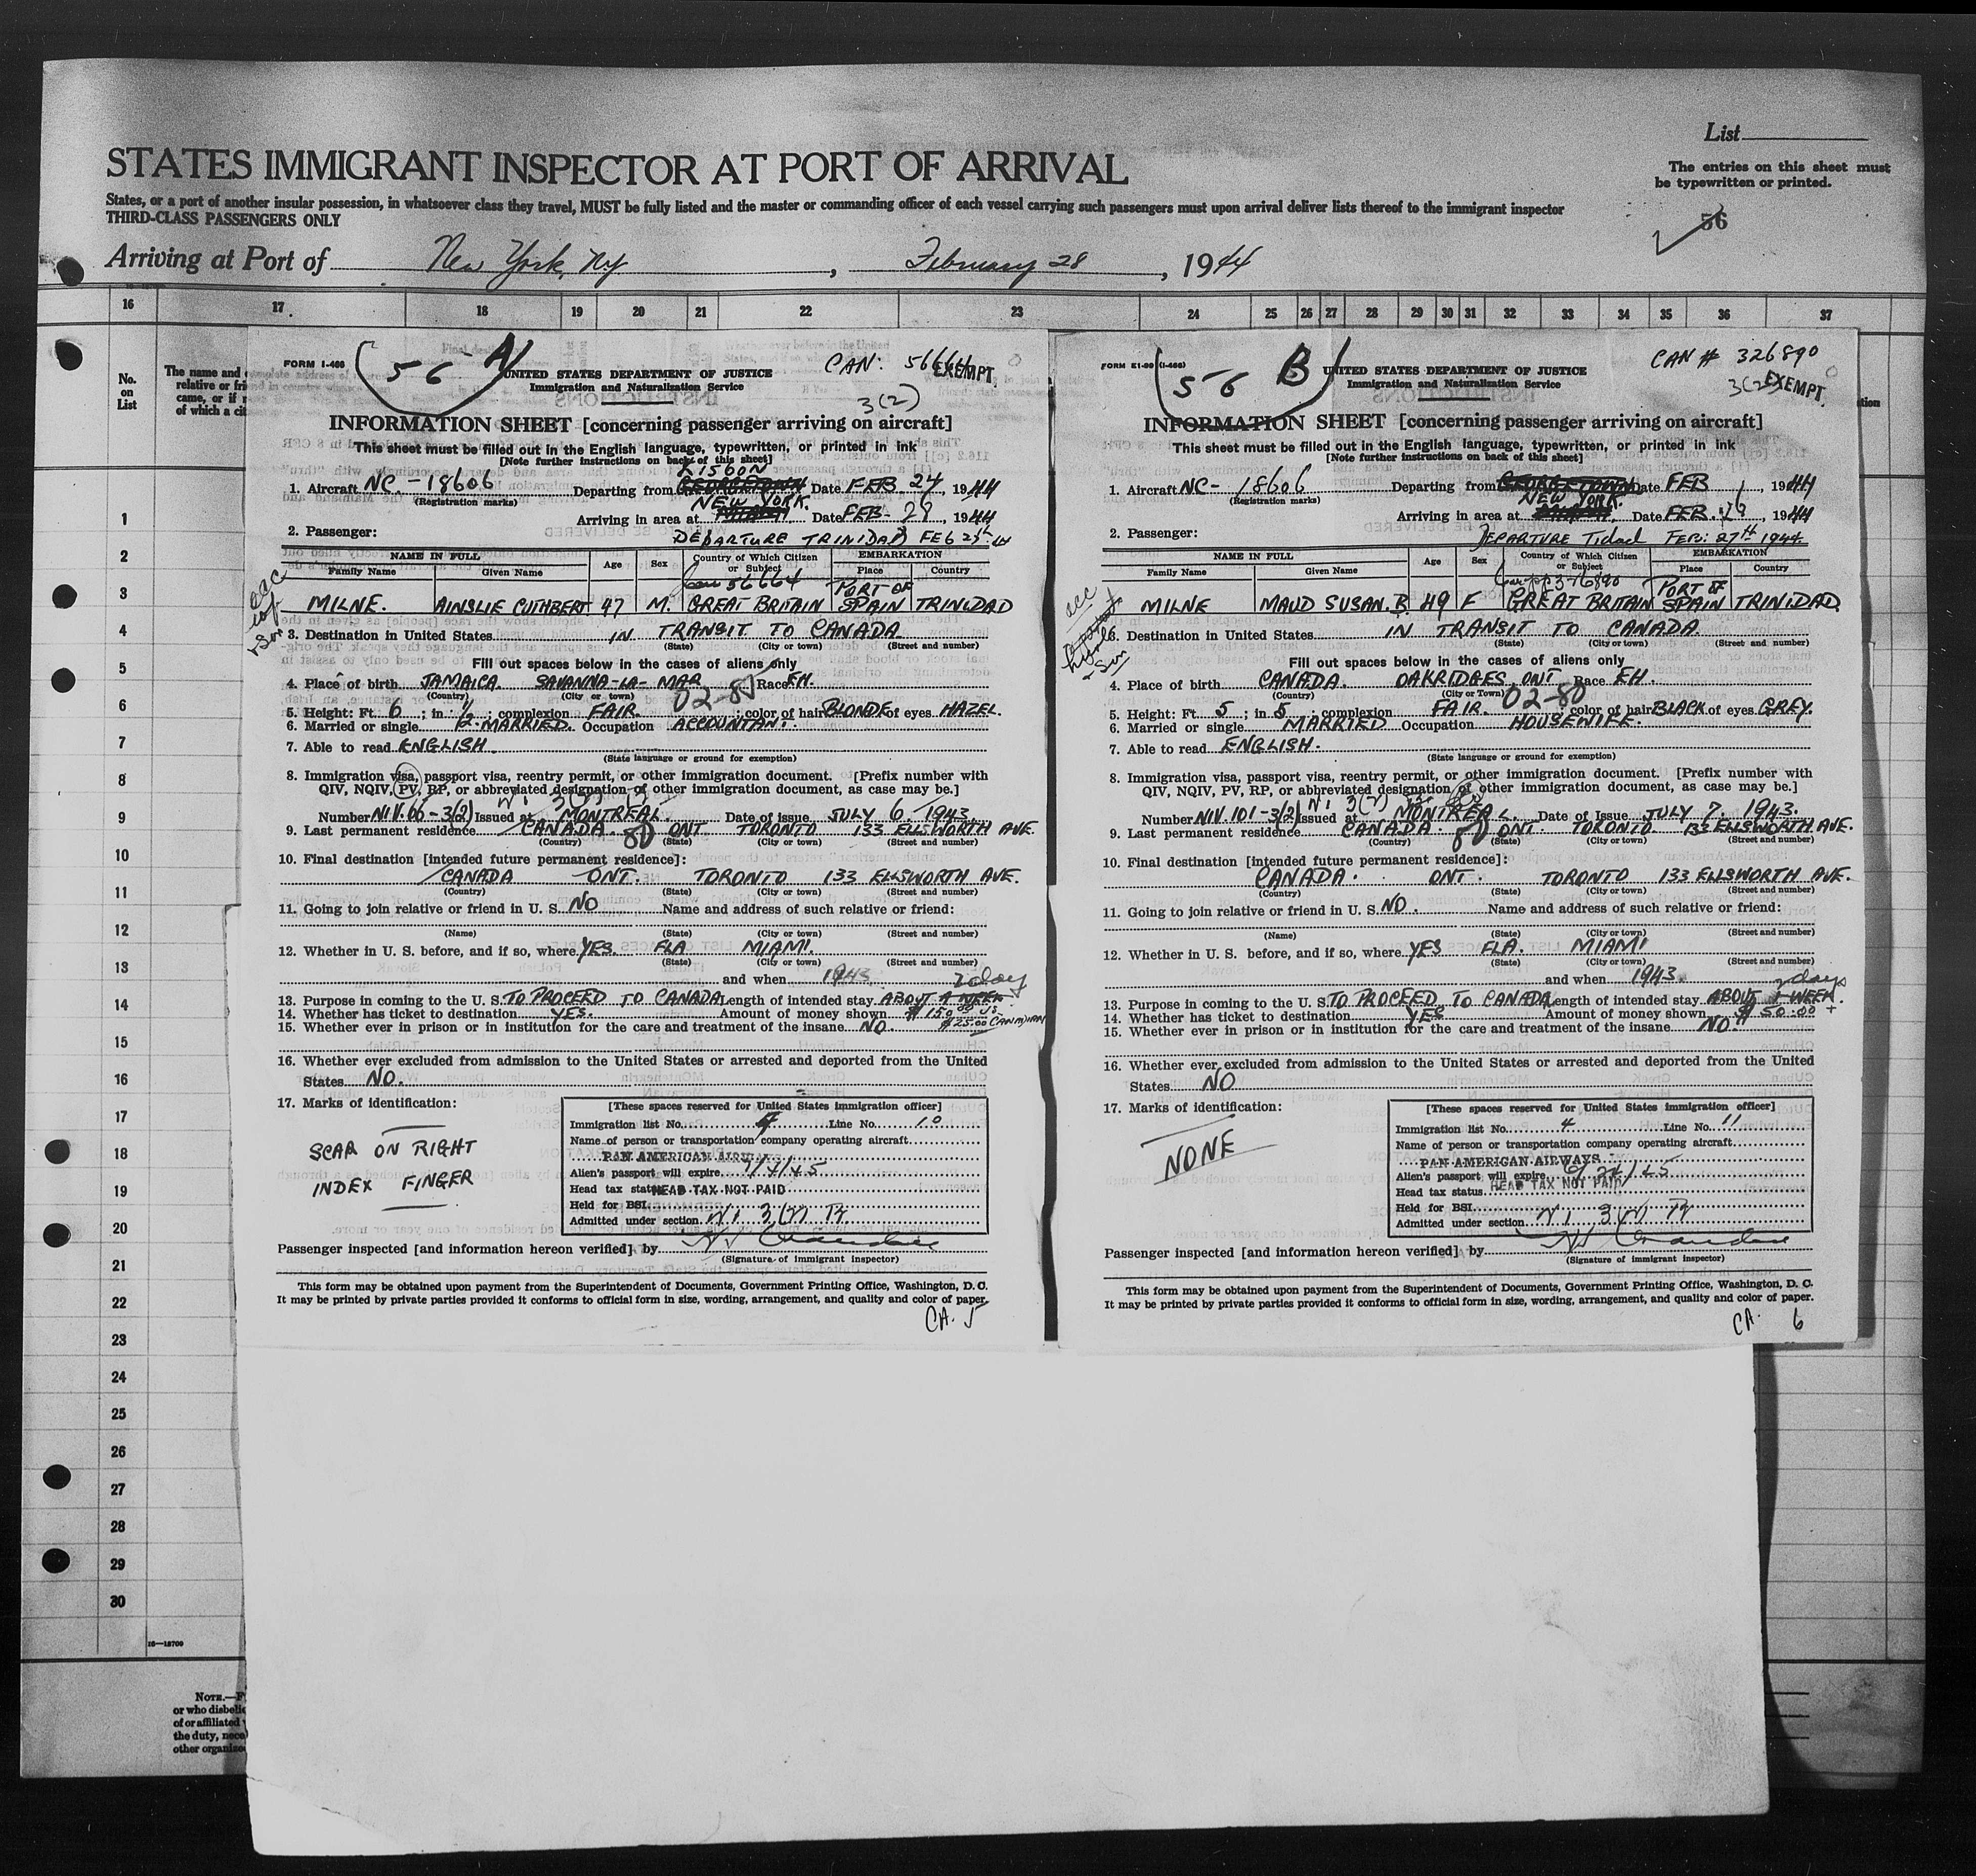 List
STATES IMMIGRANT INSPECTOR AT PORT OF ARRIVAL
The entries on this sheet must
be typewritten or printed.
States, or a port of another insular possession, in whatsoever class they travel, MUST be fully listed and the master or commanding officer of each vessel carrying such passengers must upon arrival deliver lists thereof to the immigrant inspector
THIRD-CLASS PASSENGERS ONLY
56
Arriving at Port of New York, NY, February 28, 1944
16 17 18 19 20 21 22 23 24 25 26 27 28 29 30 31 32 33 34 35 36 37
No. on List
The name and
relative or fri
came, or if
of which a cit
1
2
3
4
5
6
7
8
9
10
11
12
13
14
15
16
17
18
19
20
21
22
23
24
25
26
27
28
29
30
16—18700
NOTE.—F
or who disbelie
of or affiliated
the duty, nece
other organize
FORM I-466
56 A
CAN: 56664
EXEMPT.
3(2)
UNITED STATES DEPARTMENT OF JUSTICE
Immigration and Naturalization Service
INFORMATION SHEET [concerning passenger arriving on aircraft]
This sheet must be filled out in the English language, typewritten, or printed in ink
[Note further instructions on back of this sheet]
LISBON
1. Aircraft NC.-18606 Departing from GEORGETOWN Date FEB 24, 1944
(Registration marks)
NEW YORK.
Arriving in area at MIAMI Date FEB- 28, 1944
2. Passenger:
DEPARTURE TRINIDAD FEB
NAME IN FULL Age Sex Country of Which Citizen or Subject EMBARKATION
Family Name Given Name Place Country
56664
MILNE. AINSLIE CUTHBERT 47 M. GREAT BRITAIN PORT OF SPAIN TRINIDAD
3. Destination in United States IN TRANSIT TO CANADA
(State) (City or town) (Street and number)
Fill out spaces below in the cases of aliens only
4. Place of birth JAMAICA. SAVANNA-LA-MAR Race EH.
(Country) (City or town)
02-80
5. Height: Ft. 6; in 1/2; complexion FAIR.; color of hair BLONDE of eyes HAZEL.
6. Married or single MARRIED. Occupation ACCOUNTANT.
7. Able to read ENGLISH.
(State language or ground for exemption)
8. Immigration visa, passport visa, reentry permit, or other immigration document. [Prefix number with
QIV, NQIV, PV, RP, or abbreviated designation of other immigration document, as case may be.]
Number NIV.66-3(2) Issued at MONTREAL. Date of issue JULY 6, 1943.
9. Last permanent residence CANADA. 80 ONT. TORONTO 133 ELLSWORTH AVE.
(Country) (State) (City or town) (Street and number)
10. Final destination [intended future permanent residence]:
CANADA ONT. TORONTO 133 ELLSWORTH AVE.
(Country) (State) (City or town) (Street and number)
11. Going to join relative or friend in U. S. NO Name and address of such relative or friend:
(Name) (State) (City or town) (Street and number)
12. Whether in U. S. before, and if so, where YES. FLA MIAMI.
(State) (City or town) (Street and number)
and when 1943.
2 days
13. Purpose in coming to the U. S. TO PROCEED TO CANADA Length of intended stay ABOUT A WEEK.
14. Whether has ticket to destination YES. Amount of money shown $150.00 US
$25.00 CANADIAN
15. Whether ever in prison or in institution for the care and treatment of the insane NO.
16. Whether ever excluded from admission to the United States or arrested and deported from the United
States NO.
17. Marks of identification:
SCAR ON RIGHT
INDEX FINGER
[These spaces reserved for United States immigration officer]
Immigration list No. 4 Line No. 10
Name of person or transportation company operating aircraft
PAN AMERICAN AIRWAYS
Alien's passport will expire 7/4/45
Head tax status HEAD TAX NOT PAID
Held for BSI
Admitted under section
Passenger inspected [and information hereon verified] by
(Signature of immigrant inspector)
This form may be obtained upon payment from the Superintendent of Documents, Government Printing Office, Washington, D. C.
It may be printed by private parties provided it conforms to official form in size, wording, arrangement, and quality and color of paper.
CA. 5
FORM E1-90 (I-466)
56 B
CAN # 326890
3(2)
EXEMPT.
UNITED STATES DEPARTMENT OF JUSTICE
Immigration and Naturalization Service
INFORMATION SHEET [concerning passenger arriving on aircraft]
This sheet must be filled out in the English language, typewritten, or printed in ink
[Note further instructions on back of this sheet]
1. Aircraft NC- 18606 Departing from GEORGETOWN Date FEB, 1944
(Registration marks)
NEW YORK
Arriving in area at MIAMI. Date FEB. 28, 1944
2. Passenger:
DEPARTURE FEB: 27th 1944
NAME IN FULL Age Sex Country of Which Citizen or Subject EMBARKATION
Family Name Given Name Place Country
MILNE MAUD SUSAN. B. 49 F GREAT BRITAIN PORT OF SPAIN TRINIDAD
3. Destination in United States IN TRANSIT TO CANADA.
(State) (City or town) (Street and number)
Fill out spaces below in the cases of aliens only
4. Place of birth CANADA. OAKRIDGES, ONT. Race EH.
(Country) (City or Town)
02-80
5. Height: Ft 5; in 5; complexion FAIR.; color of hair BLACK of eyes GREY.
6. Married or single MARRIED Occupation HOUSEWIFE.
7. Able to read ENGLISH.
(State language or ground for exemption)
8. Immigration visa, passport visa, reentry permit, or other immigration document. [Prefix number with
QIV, NQIV, PV, RP, or abbreviated designation of other immigration document, as case may be.]
Number NIV. 101-3(2) Issued at MONTREAL. Date of Issue JULY 7. 1943.
9. Last permanent residence CANADA. 80 ONT. TORONTO. 133 ELLSWORTH AVE.
(Country) (State) (City or town) (Street and number)
10. Final destination [intended future permanent residence]:
CANADA. ONT. TORONTO 133 ELLSWORTH AVE.
(Country) (State) (City or town) (Street and number)
11. Going to join relative or friend in U. S. NO. Name and address of such relative or friend:
(Name) (State) (City or town) (Street and number)
12. Whether in U. S. before, and if so, where YES FLA. MIAMI
(State) (City or town) (Street and number)
and when 1943.
2 days
13. Purpose in coming to the U. S. TO PROCEED TO CANADA Length of intended stay ABOUT 1 WEEK.
14. Whether has ticket to destination YES Amount of money shown $50.00 +
15. Whether ever in prison or in institution for the care and treatment of the insane NO.
16. Whether ever excluded from admission to the United States or arrested and deported from the United
States NO
17. Marks of identification:
NONE
[These spaces reserved for United States immigration officer]
Immigration list No. 4 Line No. 11
Name of person or transportation company operating aircraft
PAN AMERICAN AIRWAYS
Alien's passport will expire
Head tax status HEAD TAX NOT PAID
Held for BSI
Admitted under section
Passenger inspected [and information hereon verified] by
(Signature of immigrant inspector)
This form may be obtained upon payment from the Superintendent of Documents, Government Printing Office, Washington, D. C.
It may be printed by private parties provided it conforms to official form in size, wording, arrangement, and quality and color of paper.
CA. 6